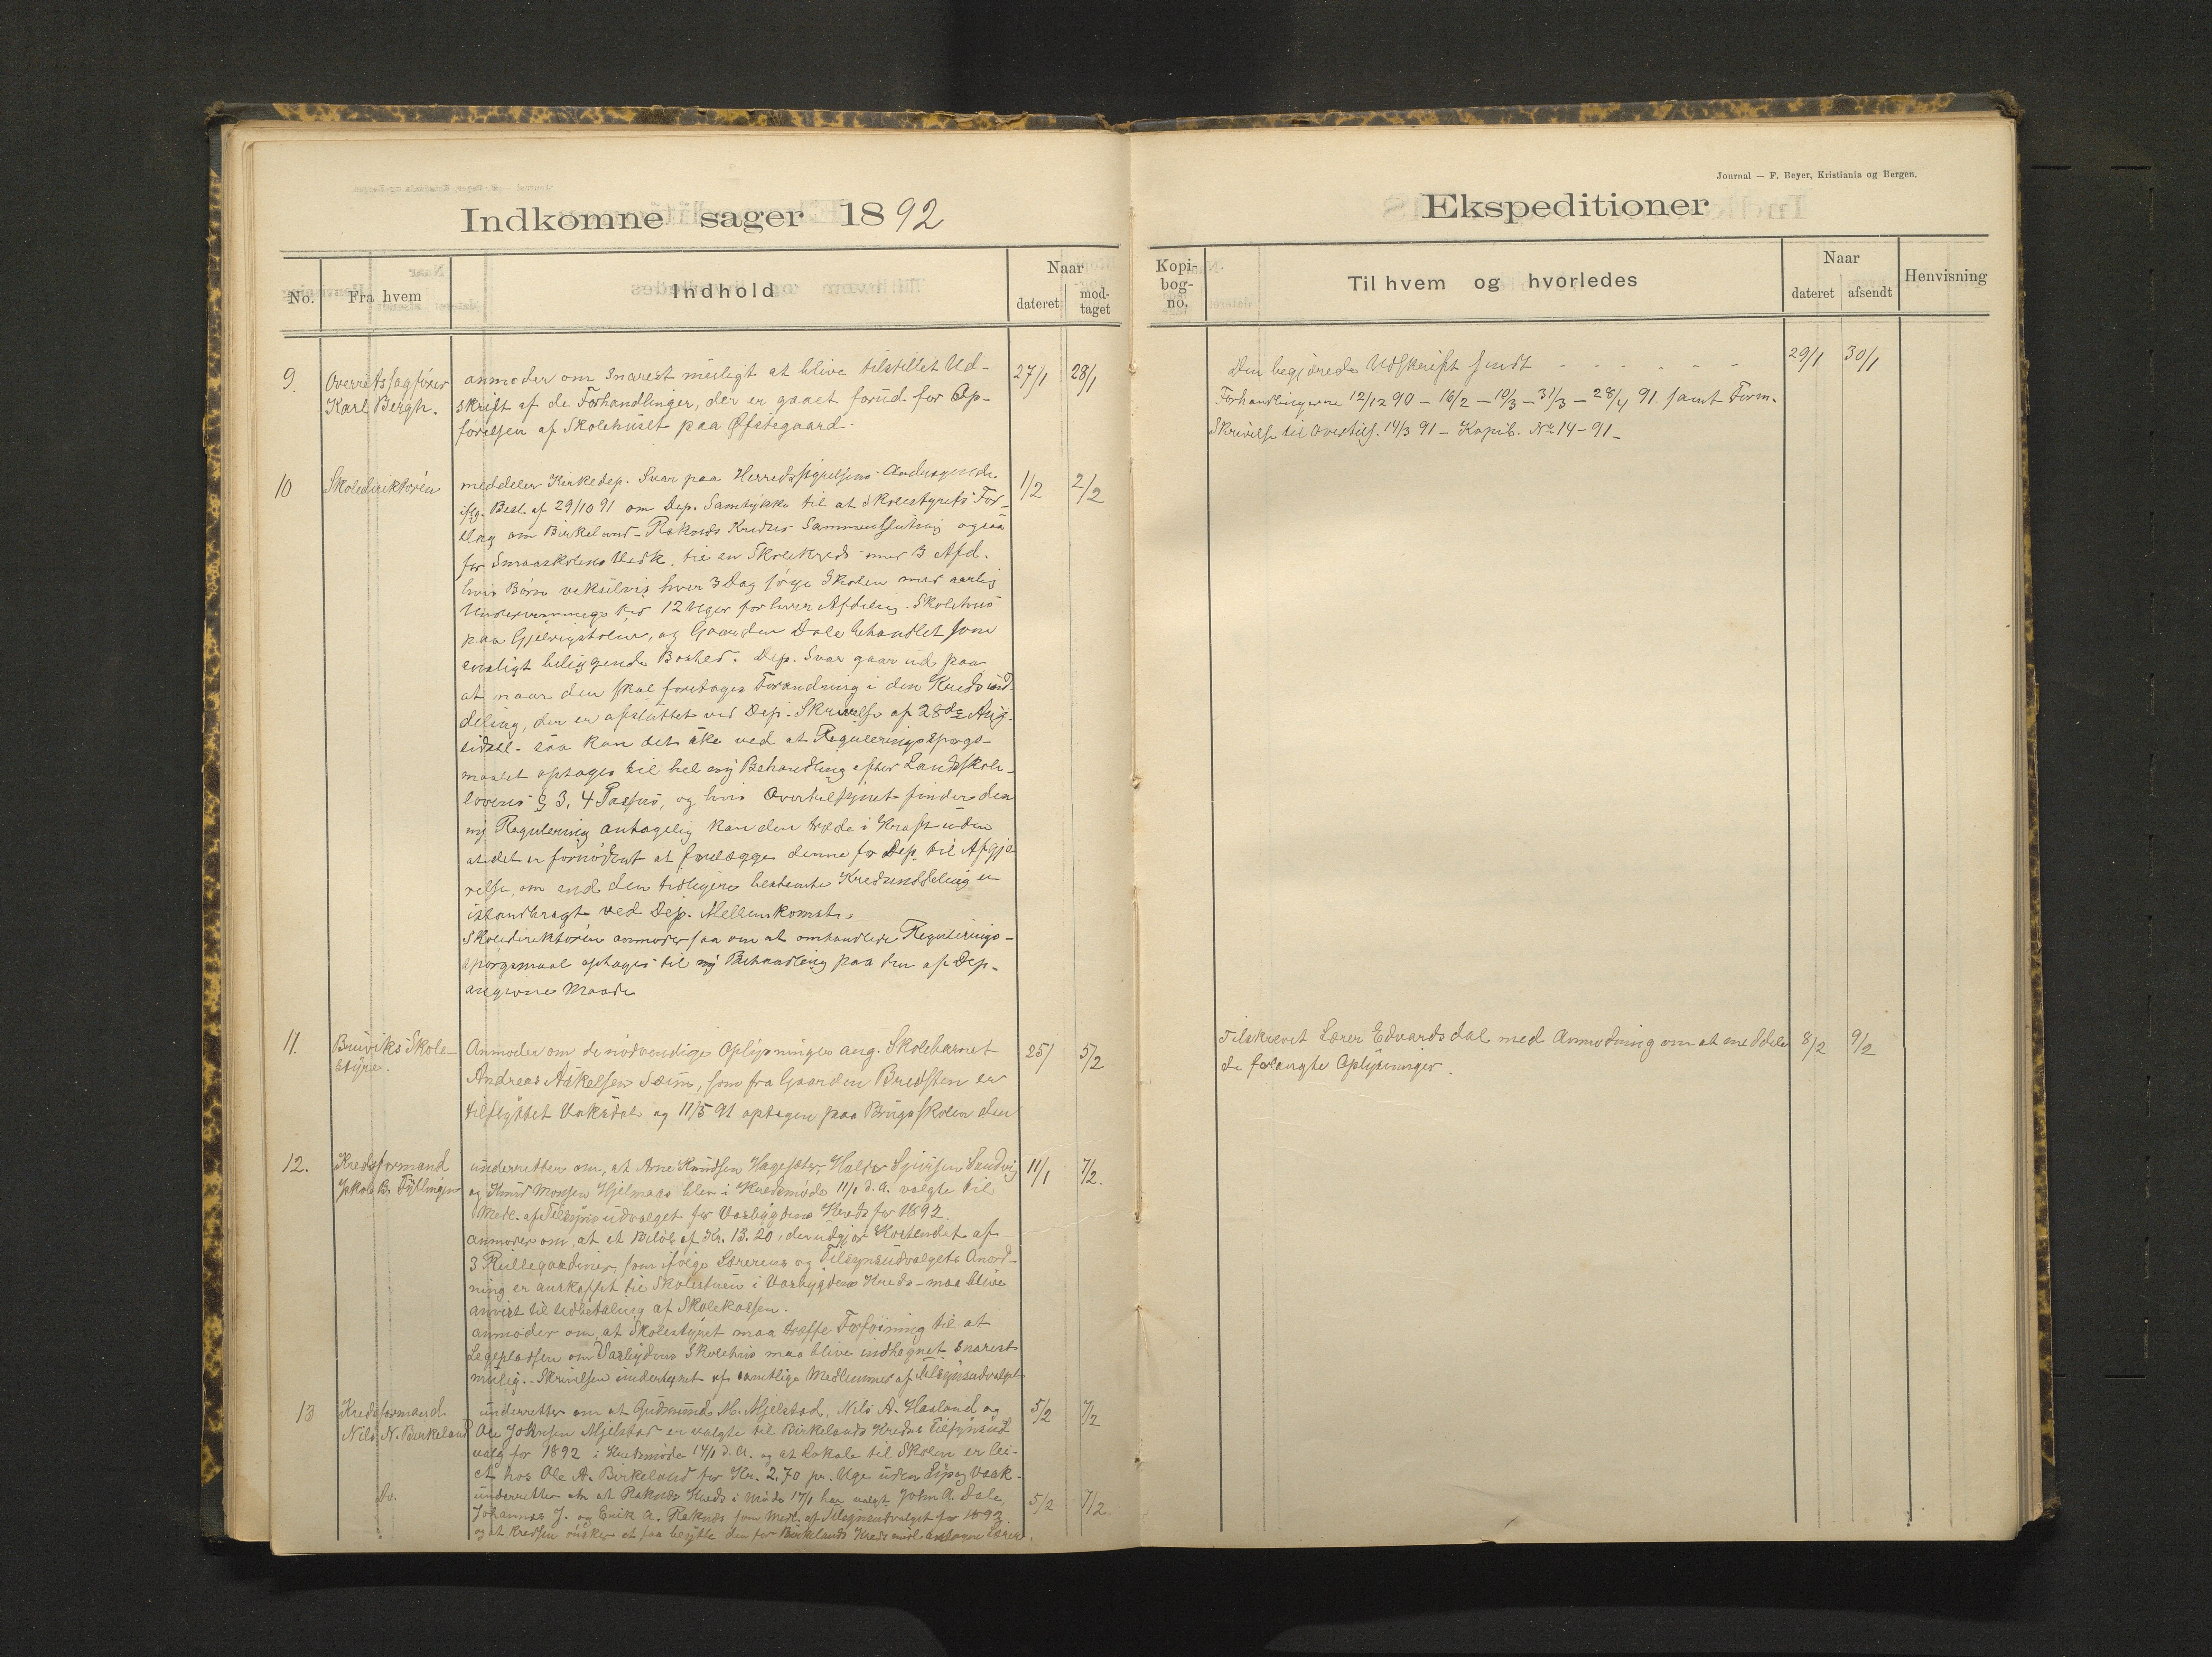 Indkomne sager 1892
No.
Fra hvem
Indhold
Naar
dateret
mod-
taget
9.
Overretssagfører
Karl Bergh.
anmoder om snarest muligt at blive tilstillet Ud-
skrift af de Forhandlinger, der er gaaet forud for Op-
førelsen af Skolehuset paa Øfstegaard.
27/1
28/1
10
Skoledirektøren
meddeler Kirkedep. Svar paa Herredsstyrelsens Andragende
iflg. Besl. af 29/10 91 om Dep. Samtykke til at Skolestyrets For-
slag om Birkeland-Raknes Kredses Sammenslutning ogsaa
for Smaaskolens Vedk. til en Skolekreds med 3 Afd.
hvis Børn vekselvis hver 3 Dag søge Skolen med aarlig
Undervisningstid 12 Uger for hver Afdeling. Skolehus
paa Gjelvigstølen, og Gaarden Dale behandlet som
ensligt beliggende Bosted. Dep. Svar gaar ud paa
at naar der skal foretages Forandring i den Kredsind-
deling, der er afsluttet ved Dep. Skrivelse af 28de Aug.
sidstl. saa kan det ske ved at Reguleringsspørgs-
maalet optages til hel ny Behandling efter Landsskole-
lovens § 3, 4 Passus, og hvis Overtilsynet finder den
ny Regulering antagelig kan den træde i Kraft uden
at det er fornødent at forelægge denne for Dep. til Afgjø-
relse, om end den tidligere bestemte Kredsinddeling er
istandbragt ved Dep. Mellemkomst.
Skoledirektøren anmoder saa om at omhandlede Regulerings-
spørgsmaal optages til ny Behandling paa den af Dep.
angivne Maade
1/2
2/2
11.
Bruviks Skole-
styre.
Anmoder om de nødvendige Oplysninger ang. Skolebarnet
Andreas Askelsen Seim, som fra Gaarden Bredsten er
tilflyttet Vaksdal og 11/5 91 optagen paa Brugsskolen der
25/
5/2
12.
Kredsformand
Jakob B. Fyllingen
underretter om, at Arne Knudsen Hagesæter, Halvor Sjursen Sandvig
og Knud Monsen Hjelmaas blev i Kredsmøde 11/1 d. A. valgte til
Medl. af Tilsynsudvalget for Vasbygdens Kreds for 1892.
anmoder om, at et Beløb af Kr. 13.20, der udgjør Kostendet af
3 Rullegardiner, som ifølge Lærerens og Tilsynsudvalgets Anord-
ning er anskaffet til Skolestuen i Vasbygdens Kreds - maa blive
anvist til Udbetaling af Skolekassen.
anmoder om, at Skolestyret maa træffe Forføining til at
Legepladsen om Vasbygdens Skolehus maa blive indhegnet snarest
mulig. - Skrivelsen undertegnet af samtlige Medlemmer af Tilsynsudvalget
11/1
7/2.
13
Kredsformand
Nils N. Birkeland
underretter om at Gudmund M. Mjelstad, Nils A. Hasland og
Ole Johnsen Mjelstad er valgte til Birkelands Kredses Tilsynsud
valg for 1892 i Kredsmøde 14/1 d. A. og at Lokale til Skolen er lei-
et hos Ole A. Birkeland for Kr. 2.70 pr. Uge uden Lys og Vask.
5/2
7/2
Do.
underretter om at Raknes Kreds i Møde 17/1 har valgt John A. Dale,
Johannes J. og Erik A. Raknes som Medl. af Tilsynsudvalget for 1892.
og at Kredsen ønsker at faa benytte den for Birkelands Kreds midl. antagne Lærer.
5/2
7/2.
Journal — F. Beyer, Kristiania og Bergen.
Ekspeditioner
Kopi-
bog-
no.
Til hvem og hvorledes
Naar
dateret
afsendt
Henvisning
Den begjærede Udskrift sendt - - - - - -
29/1
30/1
Forhandlingerne 12/12 90 - 16/2 - 10/3 - 31/3 - 28/4 91. samt Form.
Skrivelse til Overtils. 14/3 91 - Kopib. No 14 - 91 -
Tilskrevet Lærer Edvardsdal med Anmodning om at meddele
de forlangte Oplysninger.
8/2
9/2